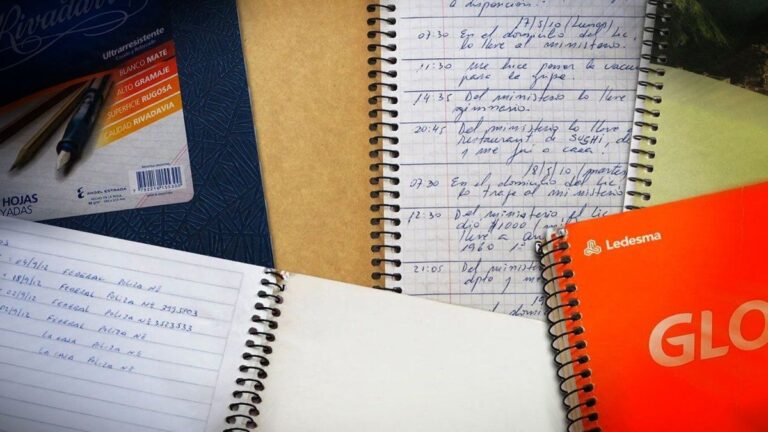 Rivadavia
Ultrarresistente
BLANCO MATE
ALTO GRAMAJE
SUPERFICIE RUGOSA
CALIDAD RIVADAVIA
HOJAS
YADAS
ANGEL ESTRADA
a disposición.
17/5/10 (Lunes)
07:30 En el domicilio del Lic,
lo llevé al ministerio.
11:30 me hice poner la vacu
para la gripe.
14:35 Del ministerio lo lleve
gimnasio.
20:45 Del ministerio lo lleve a
restaurant de SUSHI, de
y me fui a casa.
18/5/10 (martes
07:30 En el domicilio del Lic.
lo traje al ministerio
12:30 Del ministerio el Lic
dió $1000 / ministe
lleve a
1960 1º
21:05 Del ministe
dpto y m
domicilio
04/9/12 FEDERAL POLIZA Nº
18/9/12 FEDERAL POLIZA Nº
/9/12 FEDERAL POLIZA Nº 3523533
/9/12 FEDERAL POLIZA Nº
LA CAJA POLIZA Nº
LA CAJA POLIZA Nº
Ledesma
GLO